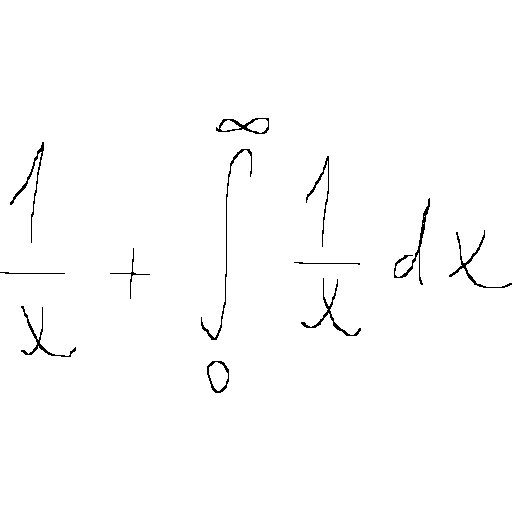 1/x + ∫₀^∞ 1/x dx